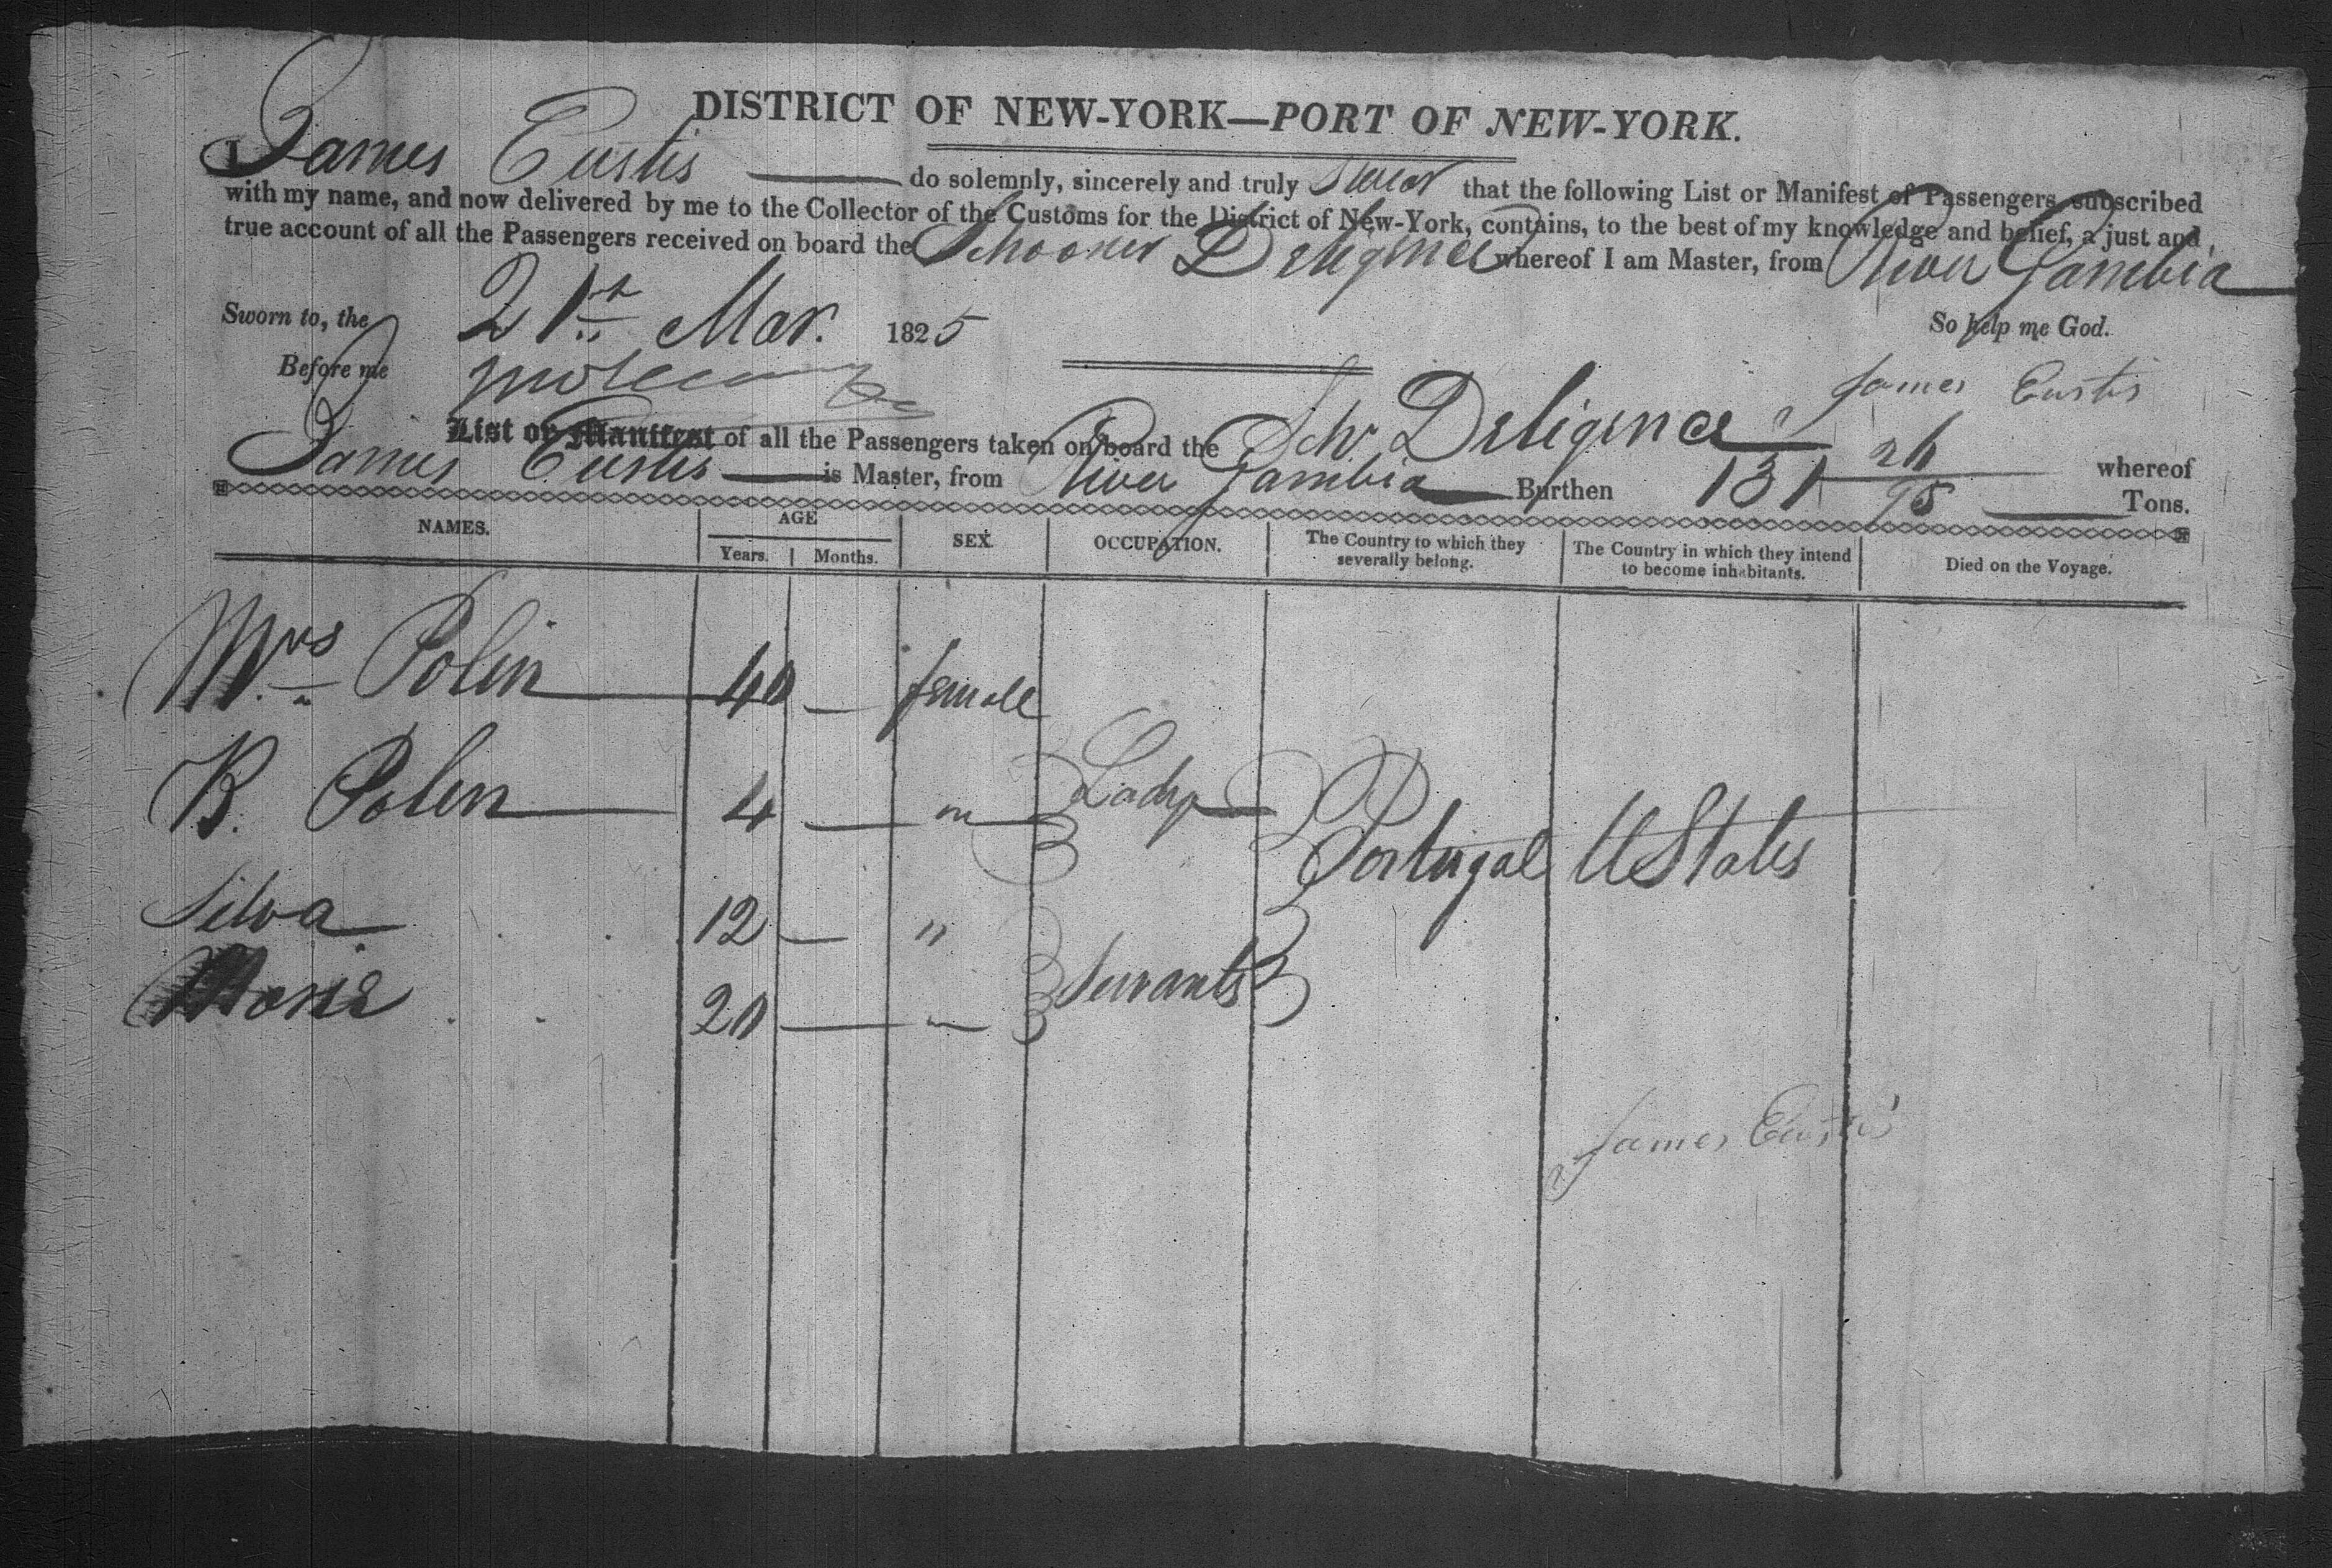 DISTRICT OF NEW-YORK—PORT OF NEW-YORK.
I James Eustis do solemnly, sincerely and truly Swear that the following List or Manifest of Passengers, subscribed
with my name, and now delivered by me to the Collector of the Customs for the District of New-York, contains, to the best of my knowledge and belief, a just and
true account of all the Passengers received on board the Schooner Deligence whereof I am Master, from River Gambia
Sworn to, the 21st Mar. 1825 So help me God.
Before me James Eustis
List or Manifest of all the Passengers taken on board the Schr Deligence whereof
James Eustis is Master, from River Gambia Burthen 131 26/95 Tons.
NAMES. AGE SEX. OCCUPATION. The Country to which they severally belong. The Country in which they intend to become inhabitants. Died on the Voyage.
Years. Months.
Mrs Polin 40 — female
B. Polin 4 — " Lady Portugal U States
Silva 12 — "
20 — " Servants
James Eustis